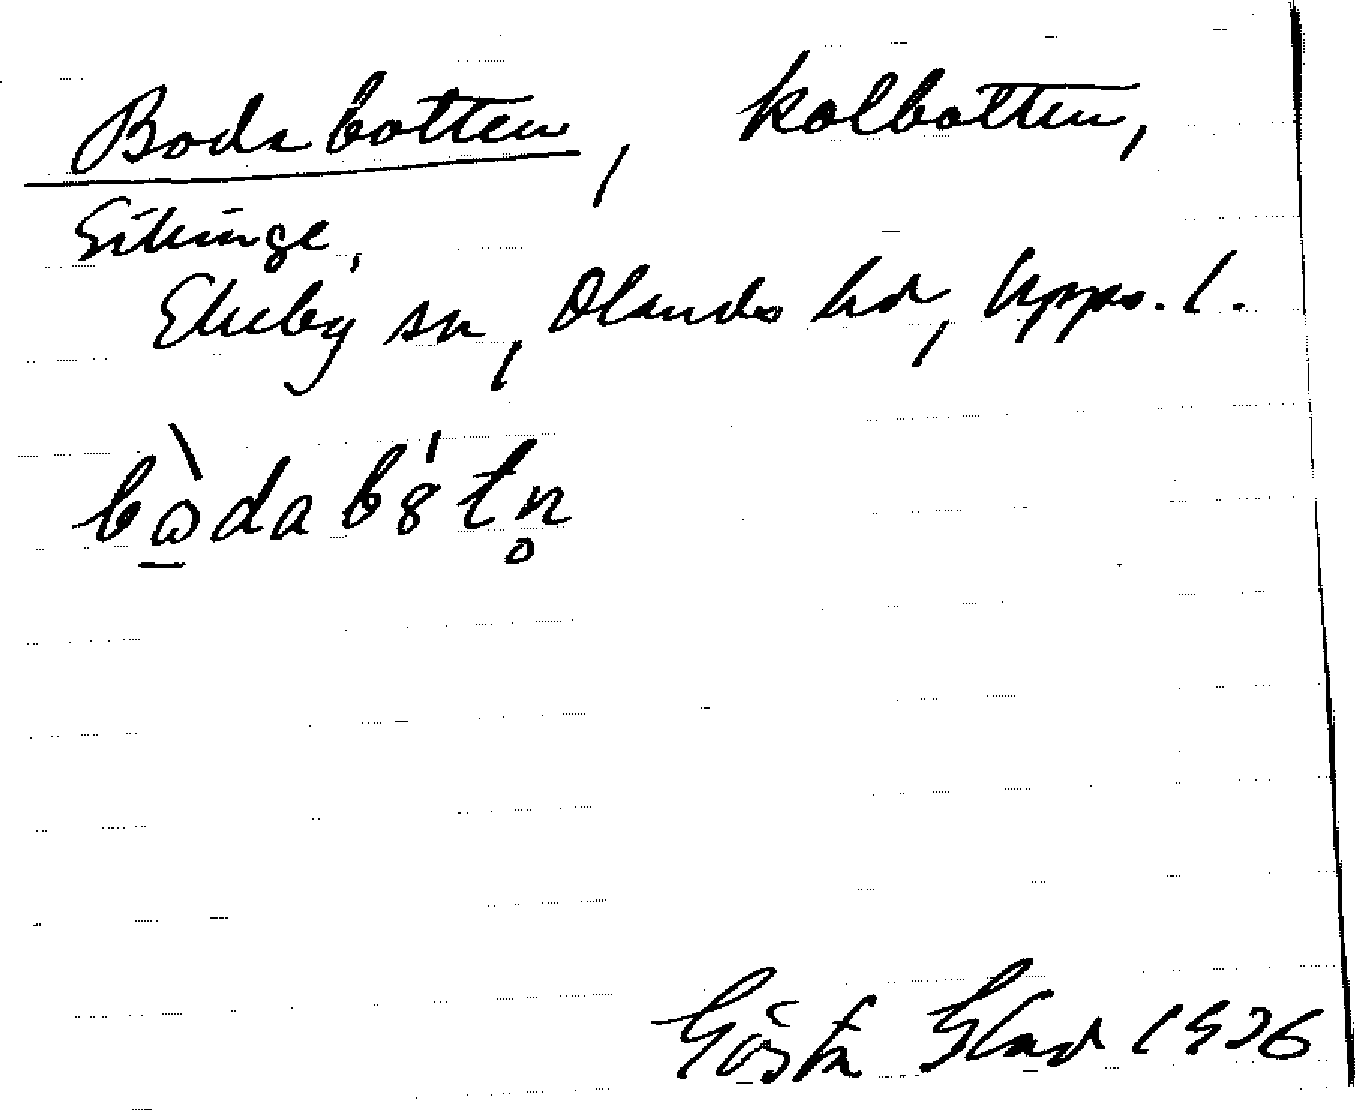 Bodabotten, kolbotten,
Sikinge,
Ekeby sn, Olands hd, Upps. l.
Gösta Blad 1926